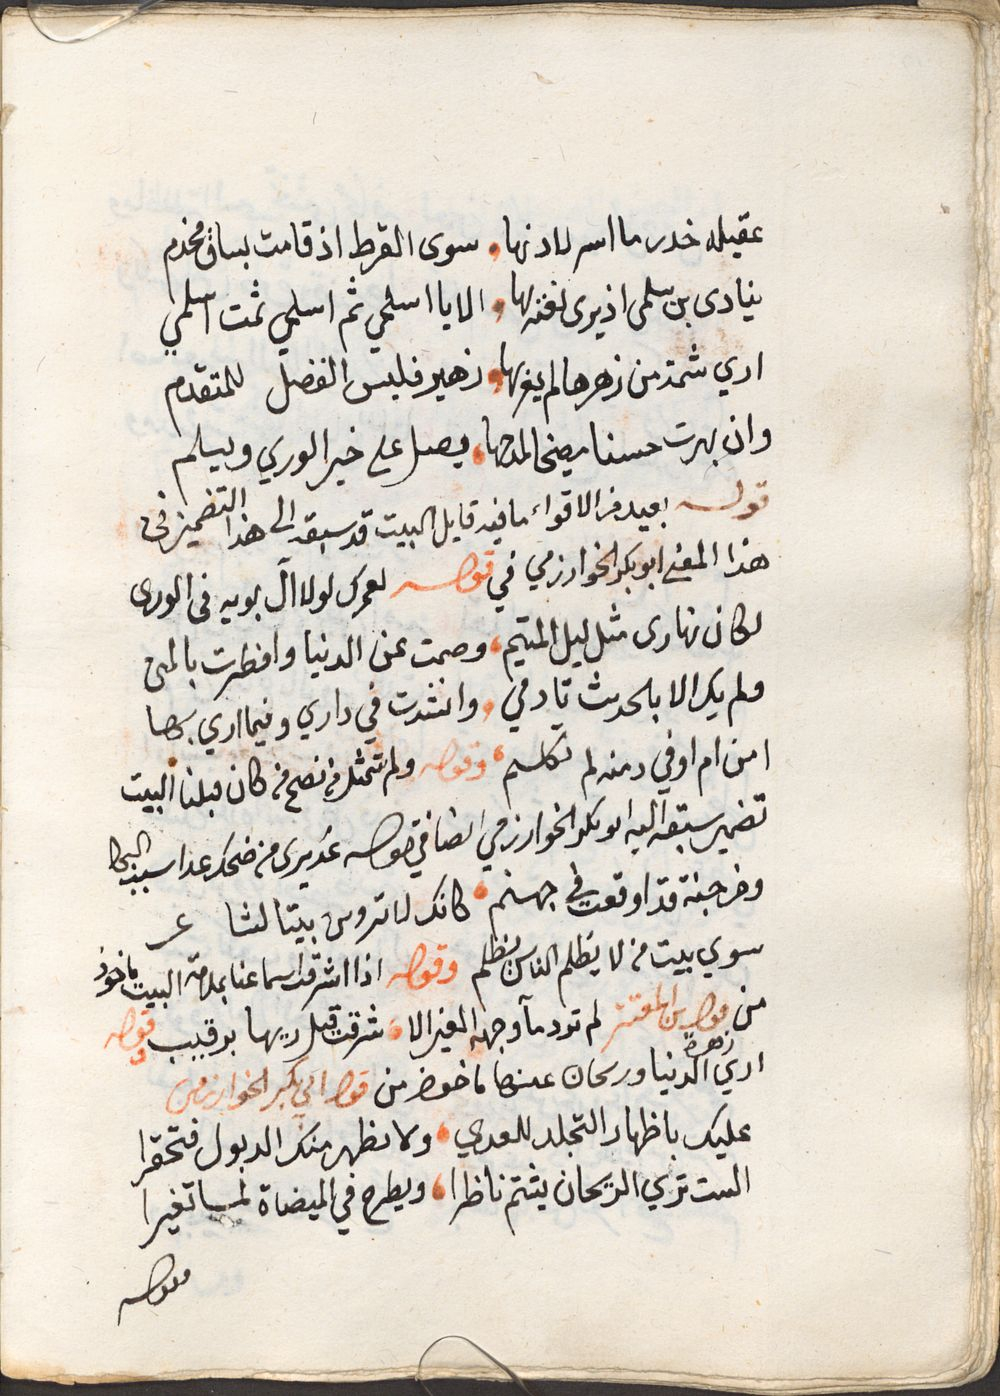 عقيله خدر ما اسر لاذنها، سوى القرط اذ قامت بساق مخدم
ينادى بن سلمى اذ يرى لفتة لها، الا يا اسلمي ثم اسلمي ثمت اسلمي
اري شمة من زهرها لم يفز بها، زهير فليس الفضل للمتقدم
وان بهرت حسنا يصخ لمدحها، يصل على خير الوري ويسلم
قوله بعيد من الاقواء ما فيه قايل البيت قد سبقه الى هذا التضمين في
هذا المعنى ابو بكر الخوارزمي في قوله لعمرك لولا آل بويه فى الورى
لكان نهارى مثل ليل المتيم، وصمت عن الدنيا وافطرت بالمنى
ولم يك الا بالحديث تادمي، وانشدت في داري وفيما اري بها
امن ام اوفي دمنه لم تكلم، وقوله ولم تتمثل من نصح من كان قبلنا البيت
تضمين سبقه اليه ابو بكر الخوارزمي ايضا في قوله عذيرى من ضحك غدا سبب البكا
ومن جنة قد اوقعت في جهنم، كانك لا تروين بيتا لشاعر
سوي بيت من لا يظلم الناس يظلم وقوله اذا اشرقت اسماعنا بملامة البيت ماخوذ
من قول بن المعتز لم ترد مآ وجهه العين الا، شرقت قبل ريها برقيب وقوله
اري زهرة الدنيا وريحان عيشها ماخوذ من قول ابي بكر الخوارزمى
عليك باظهار التجلد للعدي، ولا تظهر منك الذبول فتحقرا
الست تري الريحان يشتم ناظرا، ويطرح في الميضاة لما تغيرا
وقوله